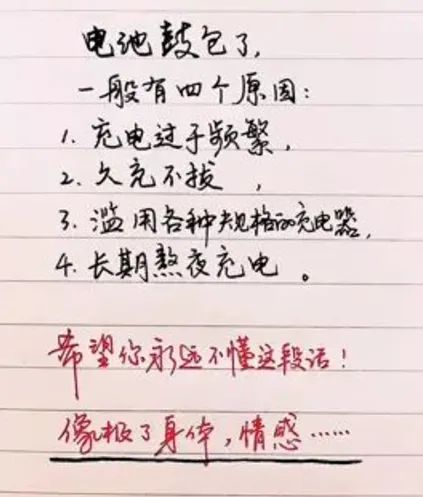 电池鼓包了,
一般有四个原因:
1. 充电过于频繁,
2. 久充不拔,
3. 滥用各种大规格的充电器,
4. 长期熬夜充电。
希望你永远不懂这段话!
像极了身体,情感……